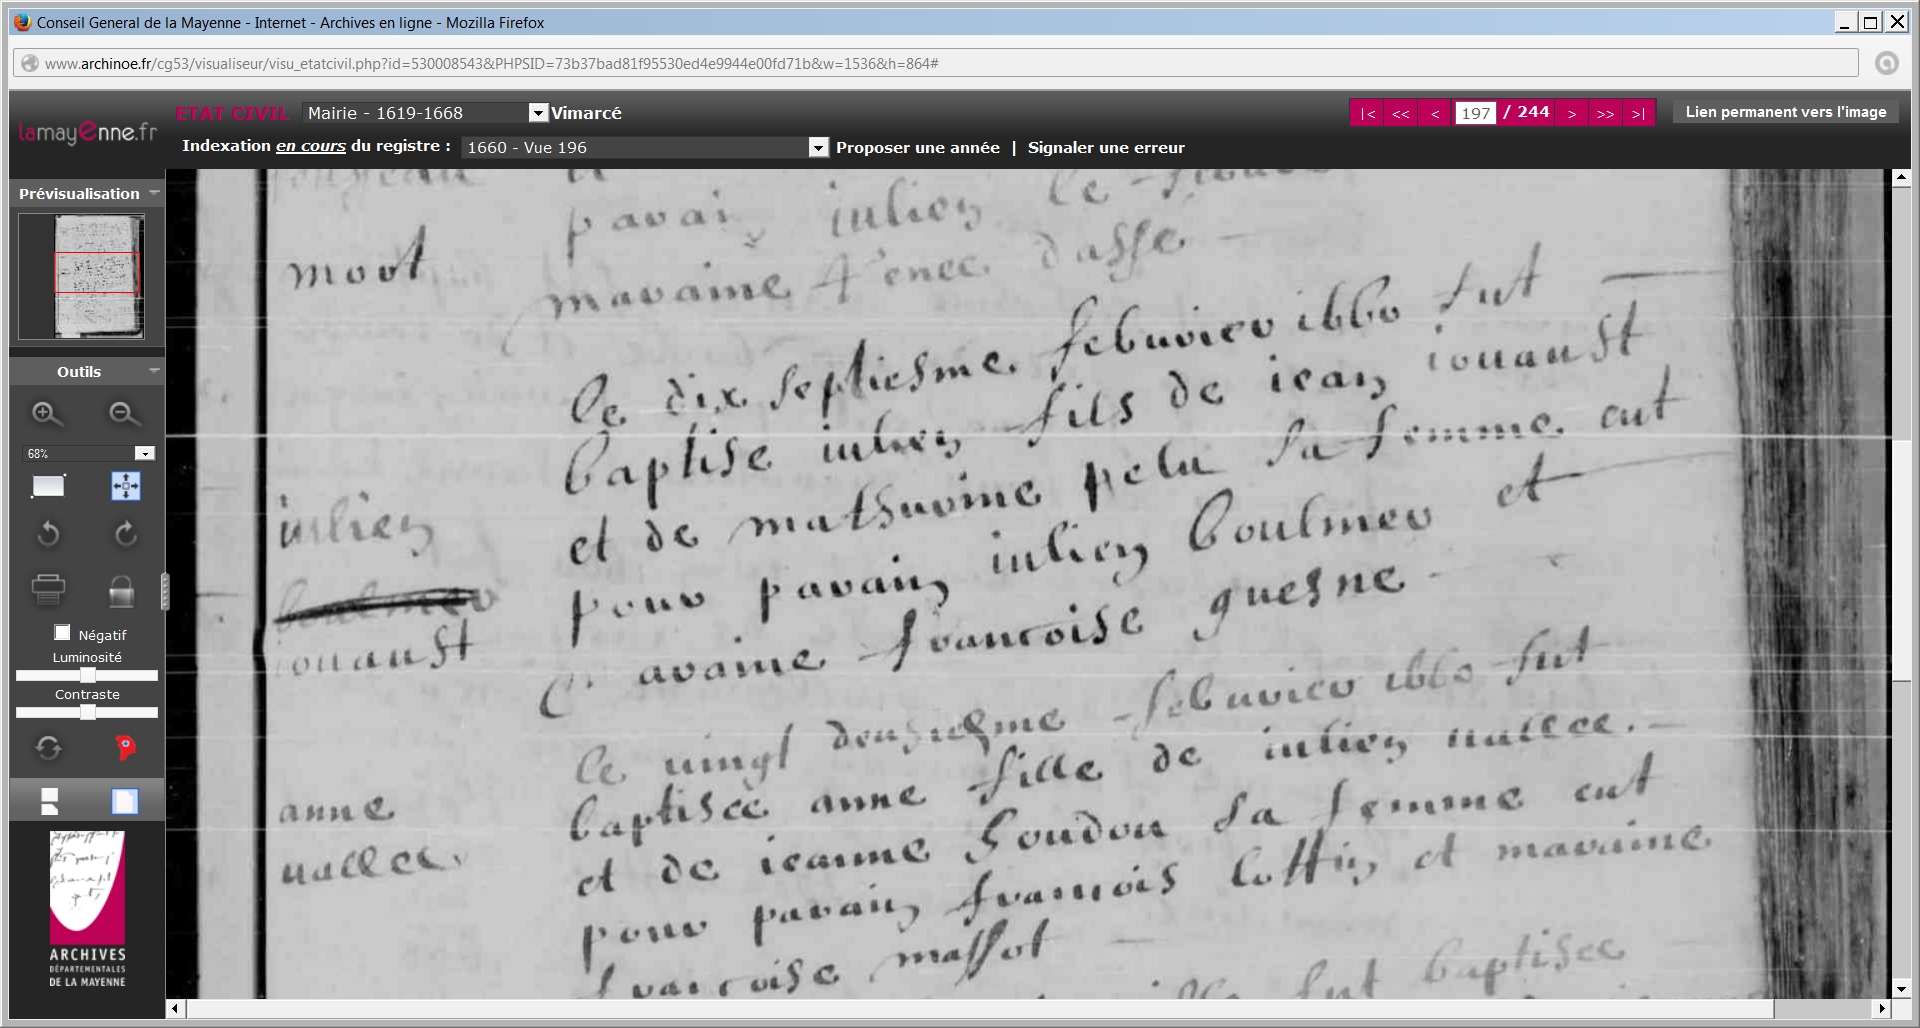 Conseil General de la Mayenne - Internet - Archives en ligne - Mozilla Firefox
www.archinoe.fr/cg53/visualiseur/visu_etatcivil.php?id=530008543&PHPSID=73b37bad81f95530ed4e9944e00fd71b&w=1536&h=864#
lamayenne.fr
ETAT CIVIL Mairie - 1619-1668 Vimarcé
|< << < 197 / 244 > >> >| Lien permanent vers l'image
Indexation en cours du registre : 1660 - Vue 196 Proposer une année | Signaler une erreur
Prévisualisation
Outils
68%
Négatif
Luminosité
Contraste
ARCHIVES
DÉPARTEMENTALES
DE LA MAYENNE
parain julien le
moot
maraine renee dasse
le dix septiesme feburier 1660 fut
baptise julien fils de jean jouanst
et de mathurine pelu sa femme eut
julien
pour parain julien boulmer et
boulmer
maraine francoise guesne
jouanst
le uingt deusiesme feburier 1660 fut
baptisee anne fille de julien uallee
anne
et de jeanne houdou sa femme eut
uallee
pour parain francois lottin et maraine
francoise massot
fut baptisee